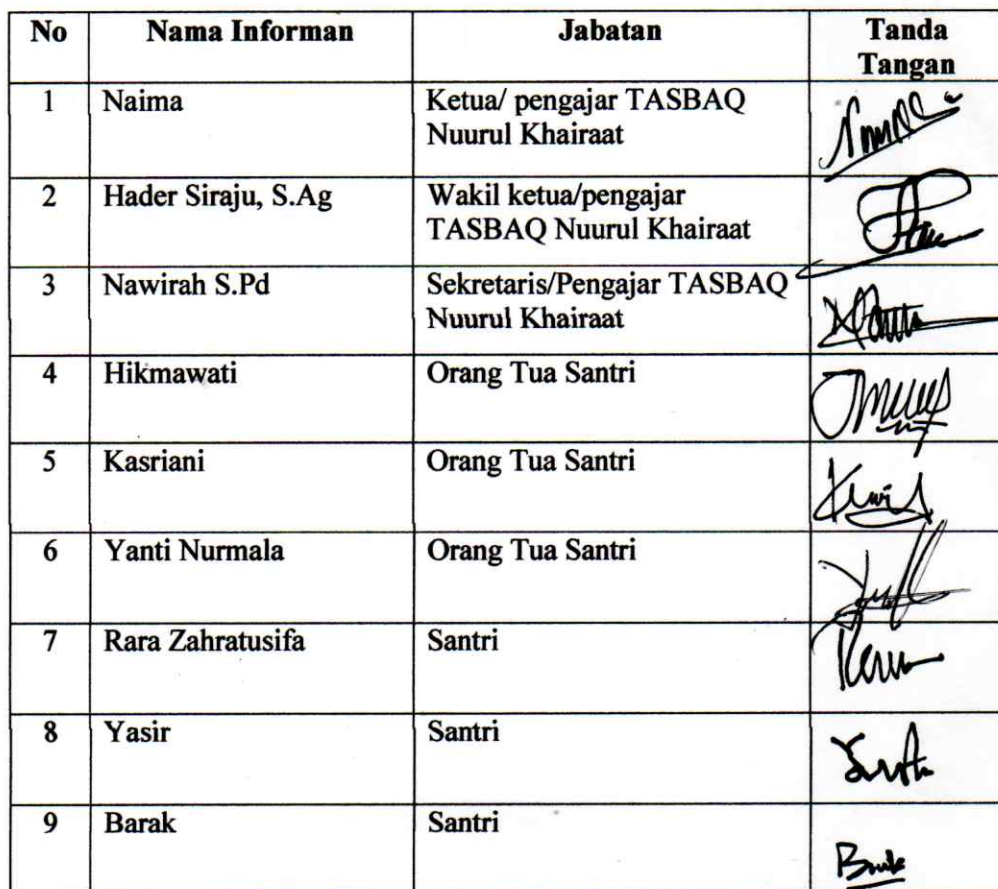 No Nama Informan Jabatan Tanda
Tangan
1 Naima Ketua/ pengajar TASBAQ
Nuurul Khairaat
2 Hader Siraju, S.Ag Wakil ketua/pengajar
TASBAQ Nuurul Khairaat
3 Nawirah S.Pd Sekretaris/Pengajar TASBAQ
Nuurul Khairaat
4 Hikmawati Orang Tua Santri
5 Kasriani Orang Tua Santri
6 Yanti Nurmala Orang Tua Santri
7 Rara Zahratusifa Santri
8 Yasir Santri
9 Barak Santri